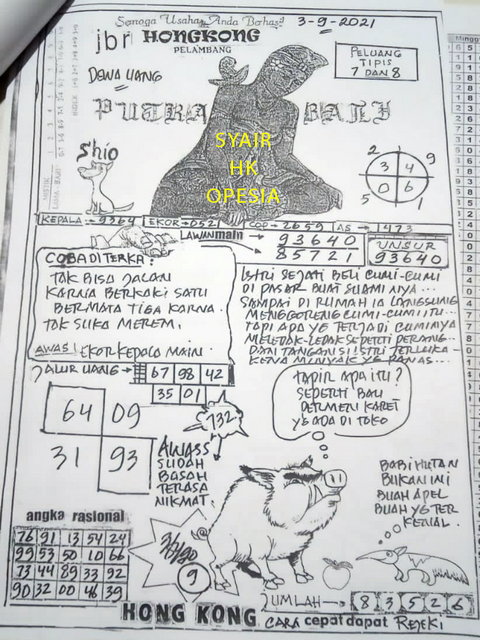 Semoga Usaha Anda Berhasil
3-9-2021
jbr HONGKONG
PELAMBANG
PELUANG
TIPIS
7 DAN 8
DEWA UANG
PUTRA BALI
SYAIR
HK
OPESIA
Shio
2 9
3 4
0 6
5 1
KEPALA → 9364 EKOR → 0521 COP → 2659 AS → 1473
LAWAN main → 93640
85721
UNSUR
93640
COBA DI TERKA:
TAK BISA JALAN
KARNA BERKAKI SATU
BERMATA TIGA KARNA.
TAK SUKA MEREM.
AWAS! EKOR KEPALA MAIN.
ISTRI SEJATI BELI CUMI-CUMI
DI PASAR BUAT SUAMI NYA...
SAMPAI DI RUMAH IA LANGSUNG
MENGGORENG CUMI-CUMI ITU...
TAPI APA YG TERJADI CUMINYA
MELETAK-LETAK SEPERTI PERANG..
DAN TANGAN SI ISTRI TERLUKA-
KENA MINYAK YG PANAS...
JALUR UANG → 67 98 42
35 01
64 09
31 93
732
AWASS
SUDAH
BASAH
TERASA
NIKMAT.
TAPIR APA ITU?
SEPERTI BAU
PERMEN KARET
YG ADA DI TOKO
BABI HUTAN
BUKAN INI
BUAH APEL
BUAH YG TER
KENAL.
angka rasional
76 91 13 54 24
99 53 50 10 66
73 44 89 33 92
90 32 00 46 39
9
JUMLAH → 8 3 5 2 6
HONG KONG CARA cepat dapat REJEKI